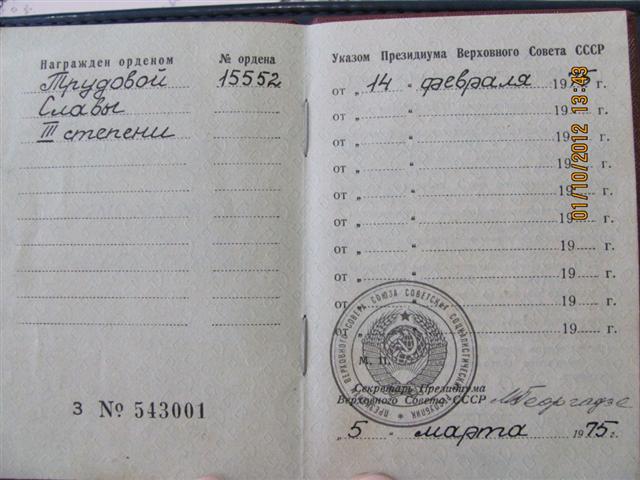 Награжден орденом № ордена
Трудовой 15552
Славы
III степени
З № 543001
Указом Президиума Верховного Совета СССР
от „ 14 “ февраля 1975 г.
от „ “ 19 г.
от „ “ 19 г.
от „ “ 19 г.
от „ “ 19 г.
от „ “ 19 г.
от „ “ 19 г.
от „ “ 19 г.
от „ “ 19 г.
от „ “ 19 г.
М. П.
Секретарь Президиума
Верховного Совета СССР М.Георгадзе
„ 5 “ марта 1975 г.
ПРЕЗИДИУМ ВЕРХОВНОГО СОВЕТА СОЮЗА СОВЕТСКИХ СОЦИАЛИСТИЧЕСКИХ РЕСПУБЛИК
01/10/2012 13:43